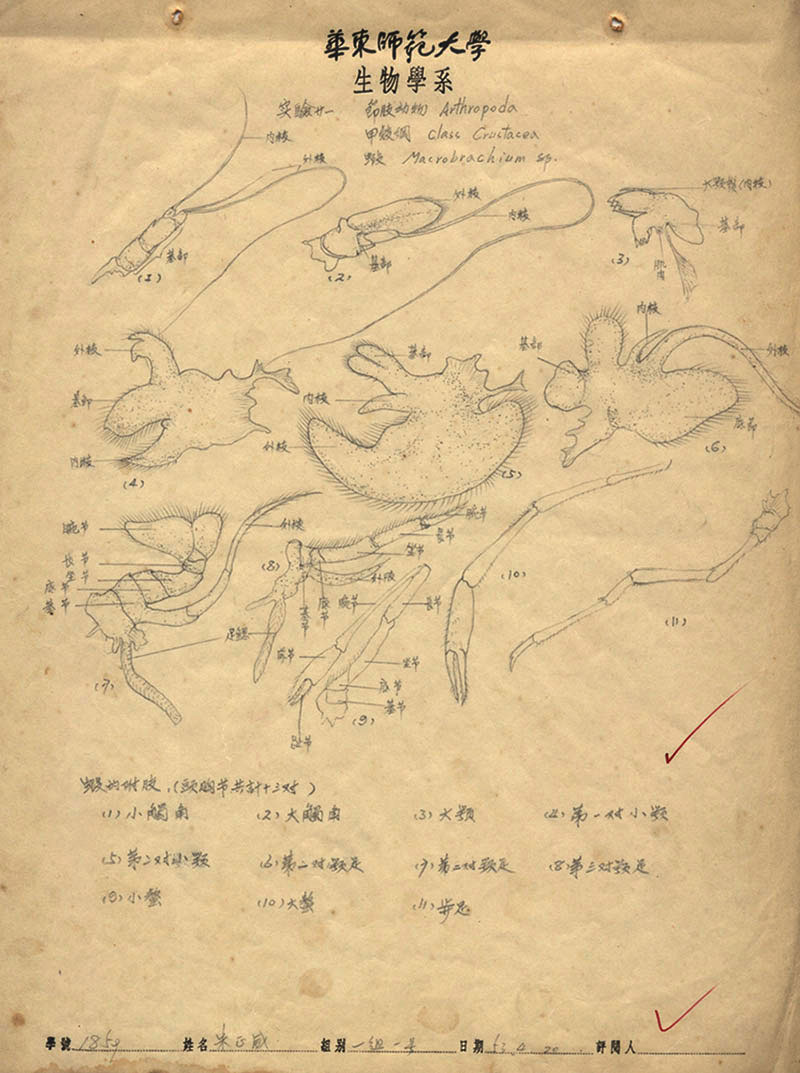 華東師範大學
生物學系
实驗廿一 節肢动物 Arthropoda
甲殼綱 Class Crustacea
蝦 Macrobrachium sp.
内枝
外枝
基部
(1)
外枝
内枝
基部
(2)
大顎鬚(内枝)
基部
肌肉
(3)
外枝
基部
内枝
(4)
基部
内枝
外枝
(5)
内枝
基部
外枝
底节
(6)
腕节
外枝
长节
坐节
底节
基节
足鳃
(7)
腕节
長节
坐节
外枝
底节
基节
(8)
腕节
長节
掌节
坐节
底节
基节
趾节
(9)
(10)
(11)
蝦的附肢.(頭胸节共計十三对)
(1)小觸角 (2)大觸角 (3)大顎 (4)第一对小顎
(5)第二对小顎 (6)第一对顎足 (7)第二对顎足 (8)第三对顎足
(9)小螯 (10)大螯 (11)步足
學號 1859 姓名 朱正威 組别 一組一 日期 53.4.20 評閱人